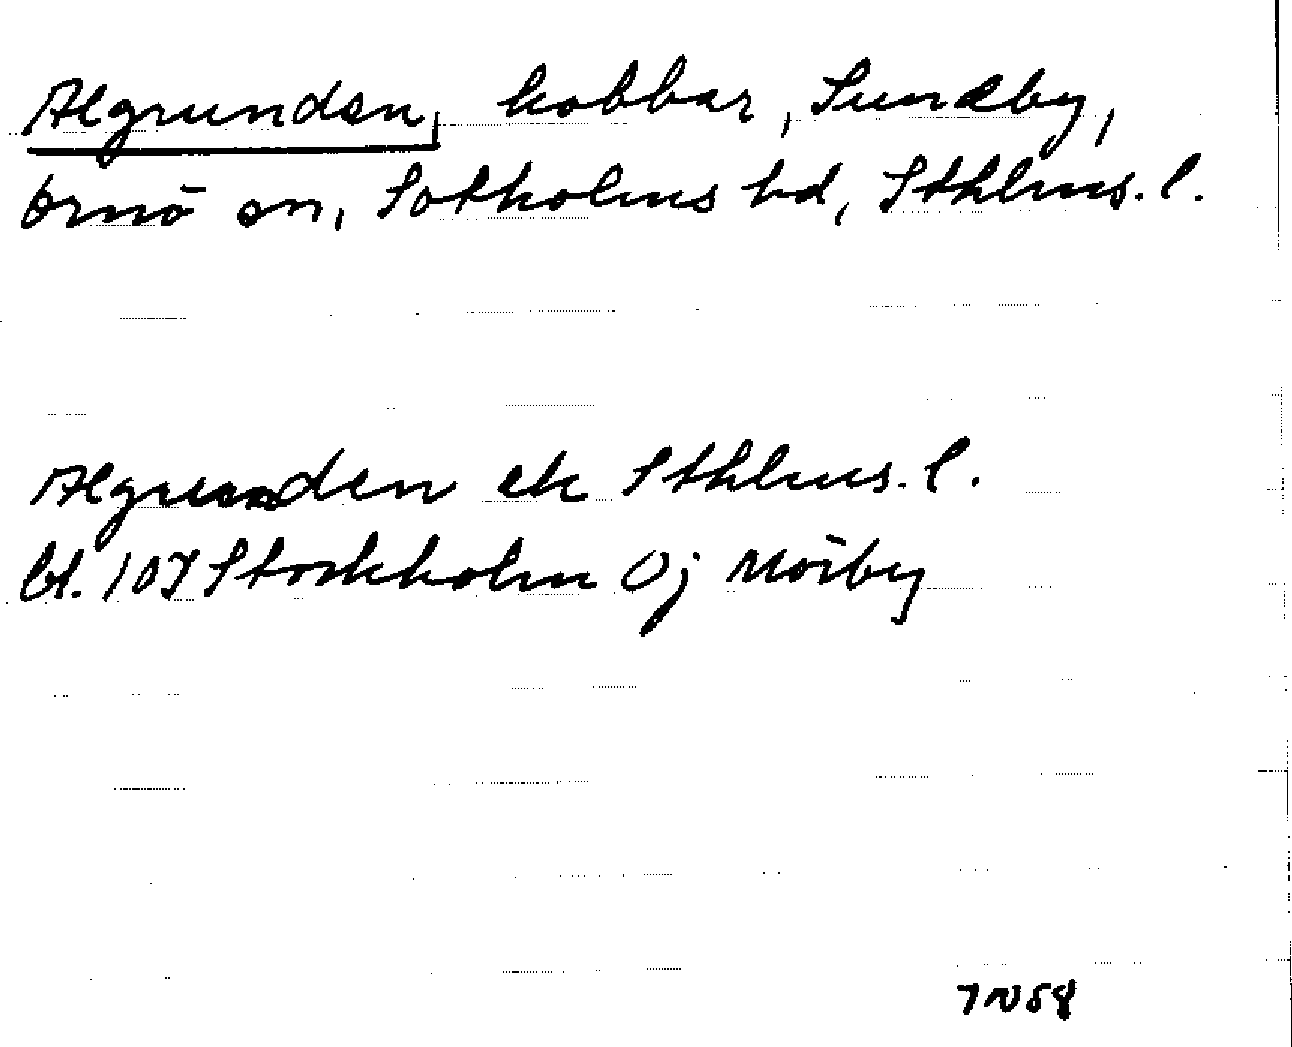 Algrunden, kobbar, Sundby,
Ornö sn, Sotholms hd, Sthlms. l.
Algrunden ek Sthlms. l.
bl. 107 Stockholm Oj Mörby